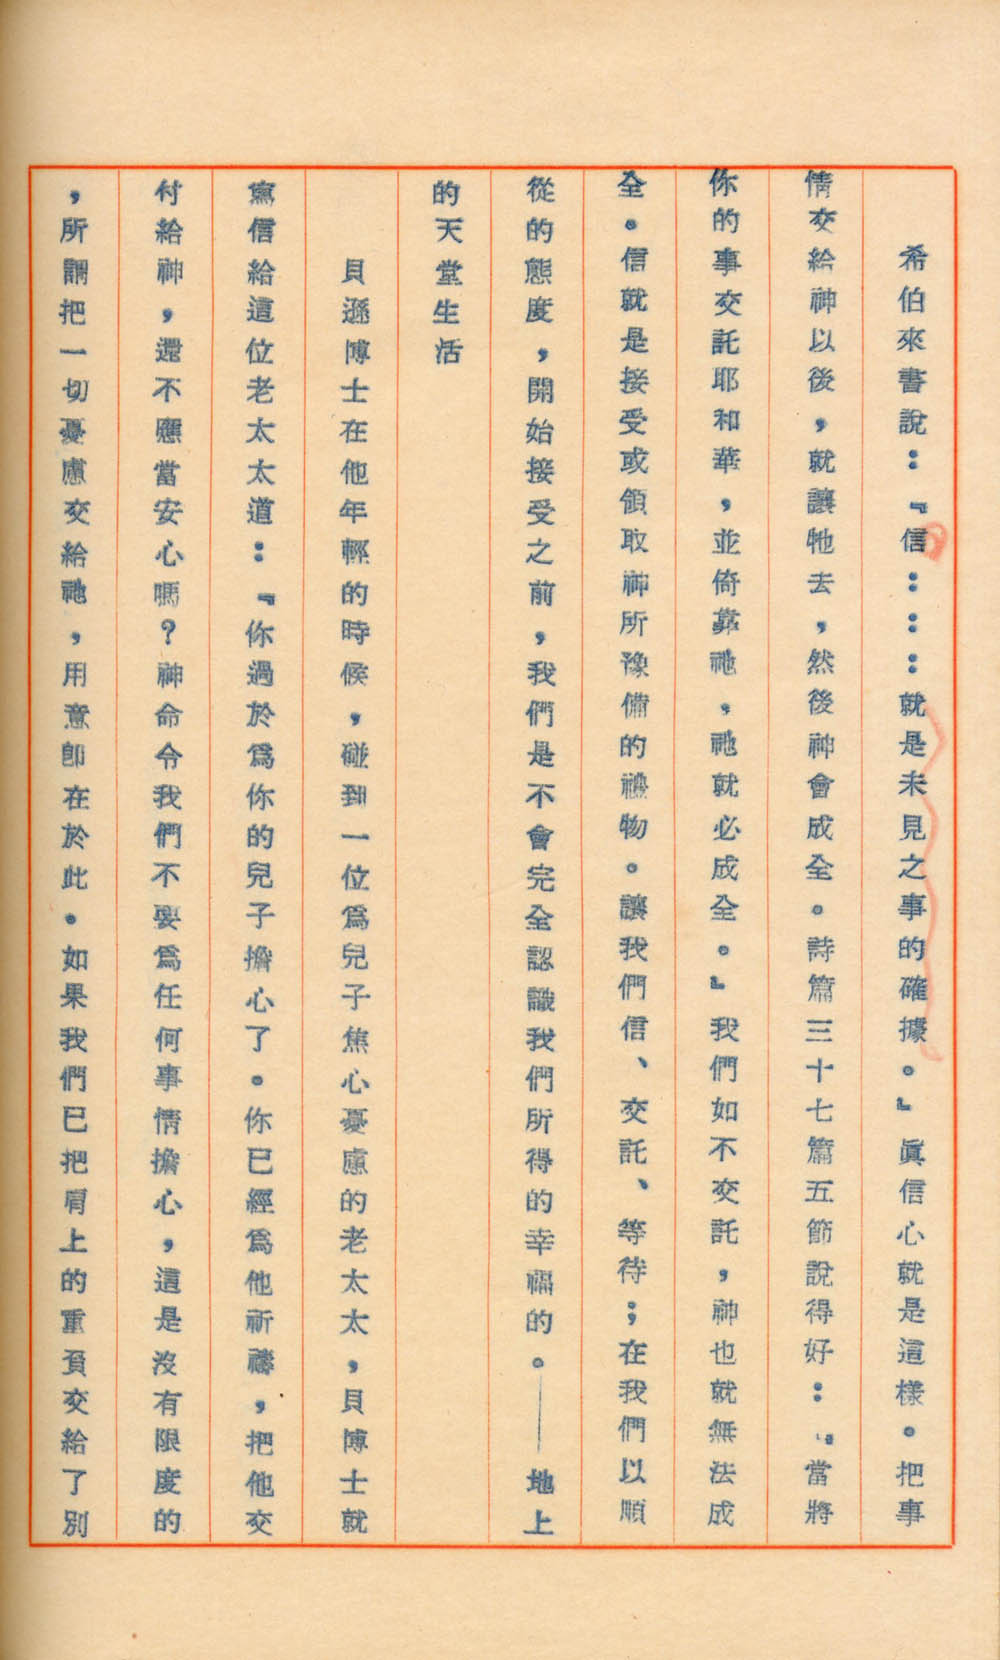 希伯來書說：『信：：：就是未見之事的確據。』眞信心就是這樣。把事
情交給神以後，就讓牠去，然後神會成全。詩篇三十七篇五節說得好：『當將
你的事交託耶和華，並倚靠祂，祂就必成全。』我們如不交託，神也就無法成
全。信就是接受或領取神所豫備的禮物。讓我們信、交託、等待；在我們以順
從的態度，開始接受之前，我們是不會完全認識我們所得的幸福的。——地上
的天堂生活
貝遜博士在他年輕的時候，碰到一位爲兒子焦心憂慮的老太太，貝博士就
寫信給這位老太太道：『你過於爲你的兒子擔心了。你已經爲他祈禱，把他交
付給神，還不應當安心嗎？神命令我們不要爲任何事情擔心，這是沒有限度的
，所謂把一切憂慮交給祂，用意卽在於此。如果我們已把肩上的重負交給了別